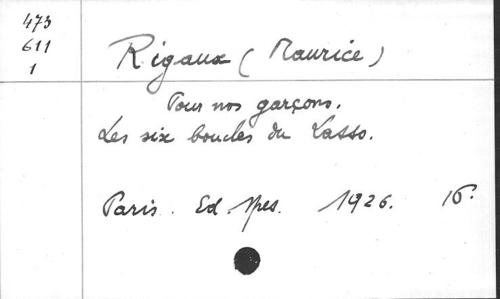 473
611
1
Rigaux (Maurice)
Pour nos garçons.
Les six boucles du Lasso.
Paris. Ed. Spes. 1926. 16.